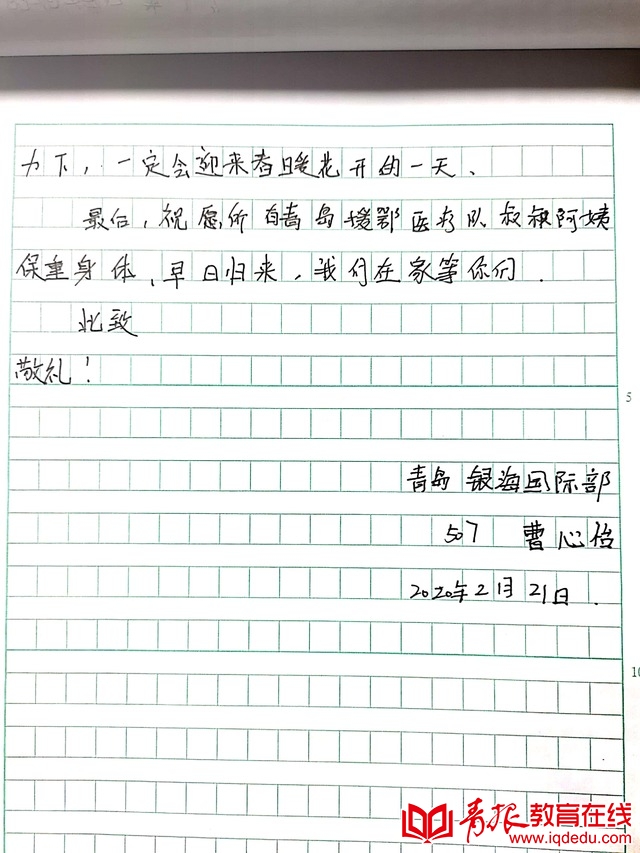 力下，一定会迎来春暖花开的一天、
最后，祝愿所有青岛援鄂医疗队叔叔阿姨
保重身体、早日归来，我们在家等你们．
此致
敬礼！
5
青岛银海国际部
507 曹心怡
2020年2月21日．
10
青报教育在线
www.iqdedu.com